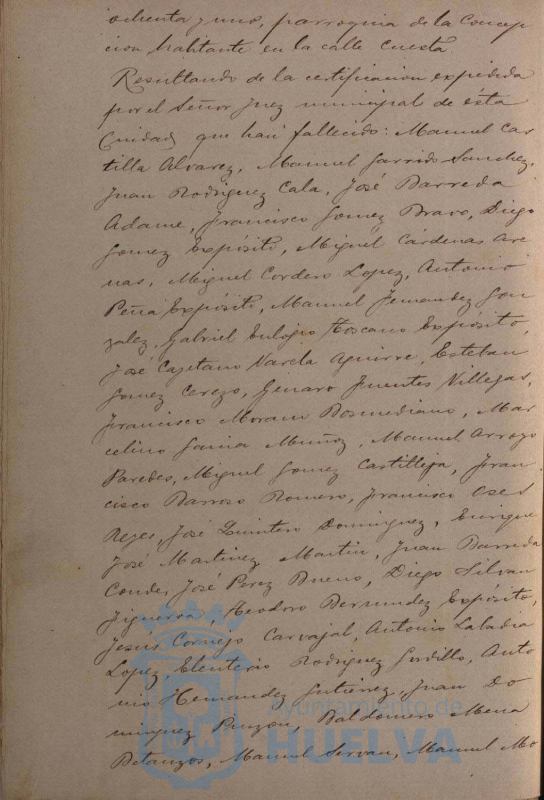 ochenta y uno, parroquia de la Concep
cion habitante en la calle Cuesta
Resultando de la certificacion expedida
por el Señor Juez municipal de ésta
Ciudad, que han fallecido: Manuel Cas
tilla Alvarez, Manuel Garrido Sanchez,
Juan Rodriguez Cala, José Barreda
Adame, Francisco Gomez Bravo, Diego
Gomez Expósito, Miguel Cárdenas Are
nas, Miguel Cordero Lopez, Antonio
Peña Expósito, Manuel Fernandez Gon
zalez, Gabriel Eulogio Toscano Expósito,
José Cayetano Varela Aguirre, Esteban
Gomez Cerezo, Genaro Fuentes Villegas,
Francisco Moram Bosmediano, Mar
celino Garcia Muñoz, Manuel Arroyo
Paredes, Miguel Gomez Castilleja, Fran
cisco Barroso Romero, Francisco
Reyes, José Quintero Dominguez, Enrique
José Martinez Martin, Juan Barreda
Conde, José Perez Bueno, Diego Silvan
Figueroa, Teodoro Bermudez Expósito,
Jesús Cornejo Carvajal, Antonio Labadia
Lopez, Eleuterio Rodriguez Gordillo, Anto
nio Hernandez Gutierrez, Juan Do
minguez Pinzon, Baldomero Mena
Belanzos, Manuel Servan, Manuel Mo
Ayuntamiento de
HUELVA